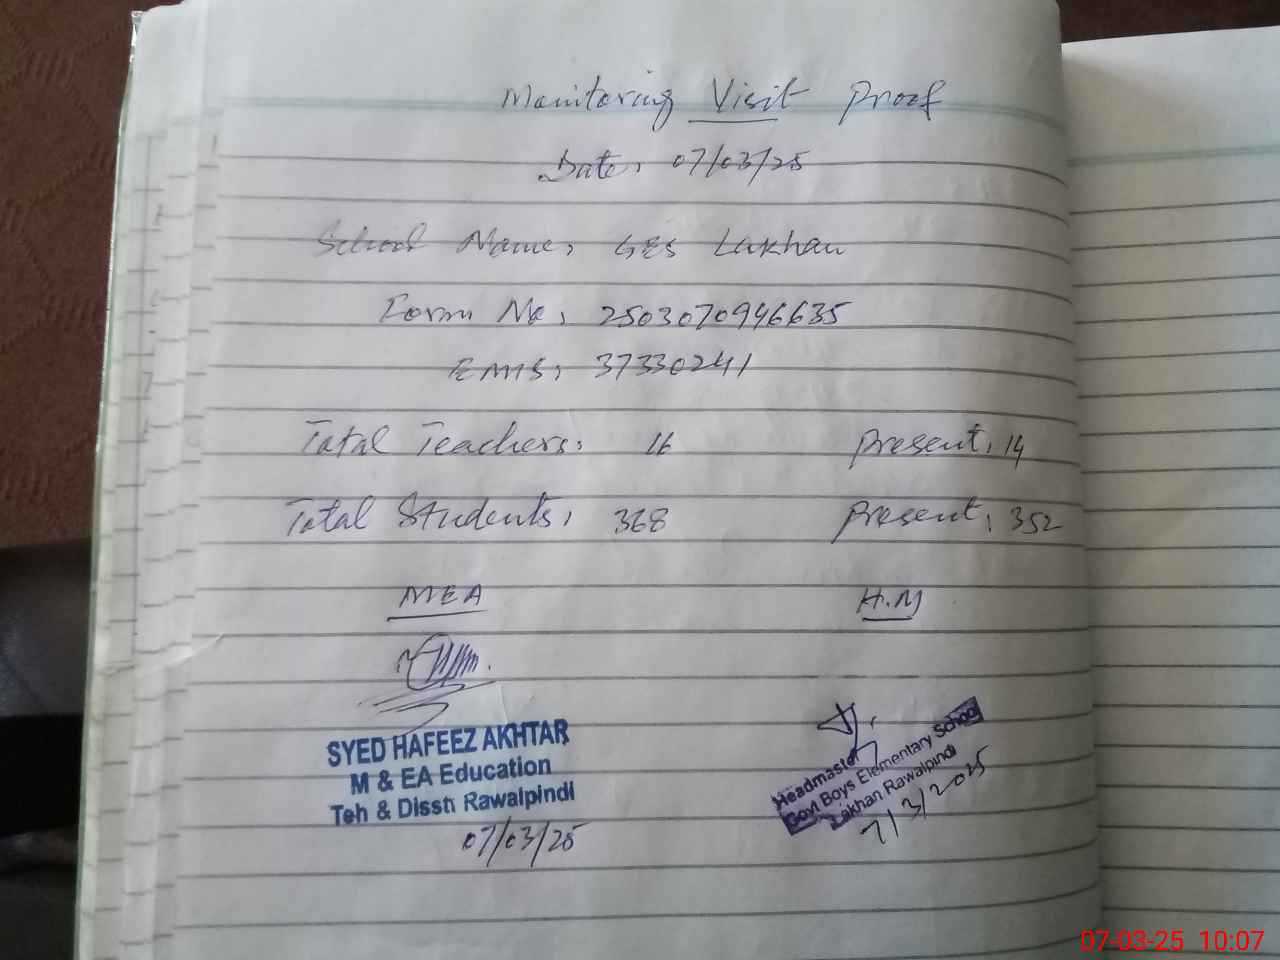 Monitoring Visit Proof
Date: 07/03/25
School Name: GES Lakhan
Form No: 2503070946635
EMIS: 37330241
Total Teachers: 16 Present: 14
Total Students: 368 Present: 352
MEA H.M
SYED HAFEEZ AKHTAR
M & EA Education
Teh & Distt Rawalpindi
07/03/25
Headmaster
Govt Boys Elementary School
Lakhan Rawalpindi
7/3/2025
07-03-25 10:07